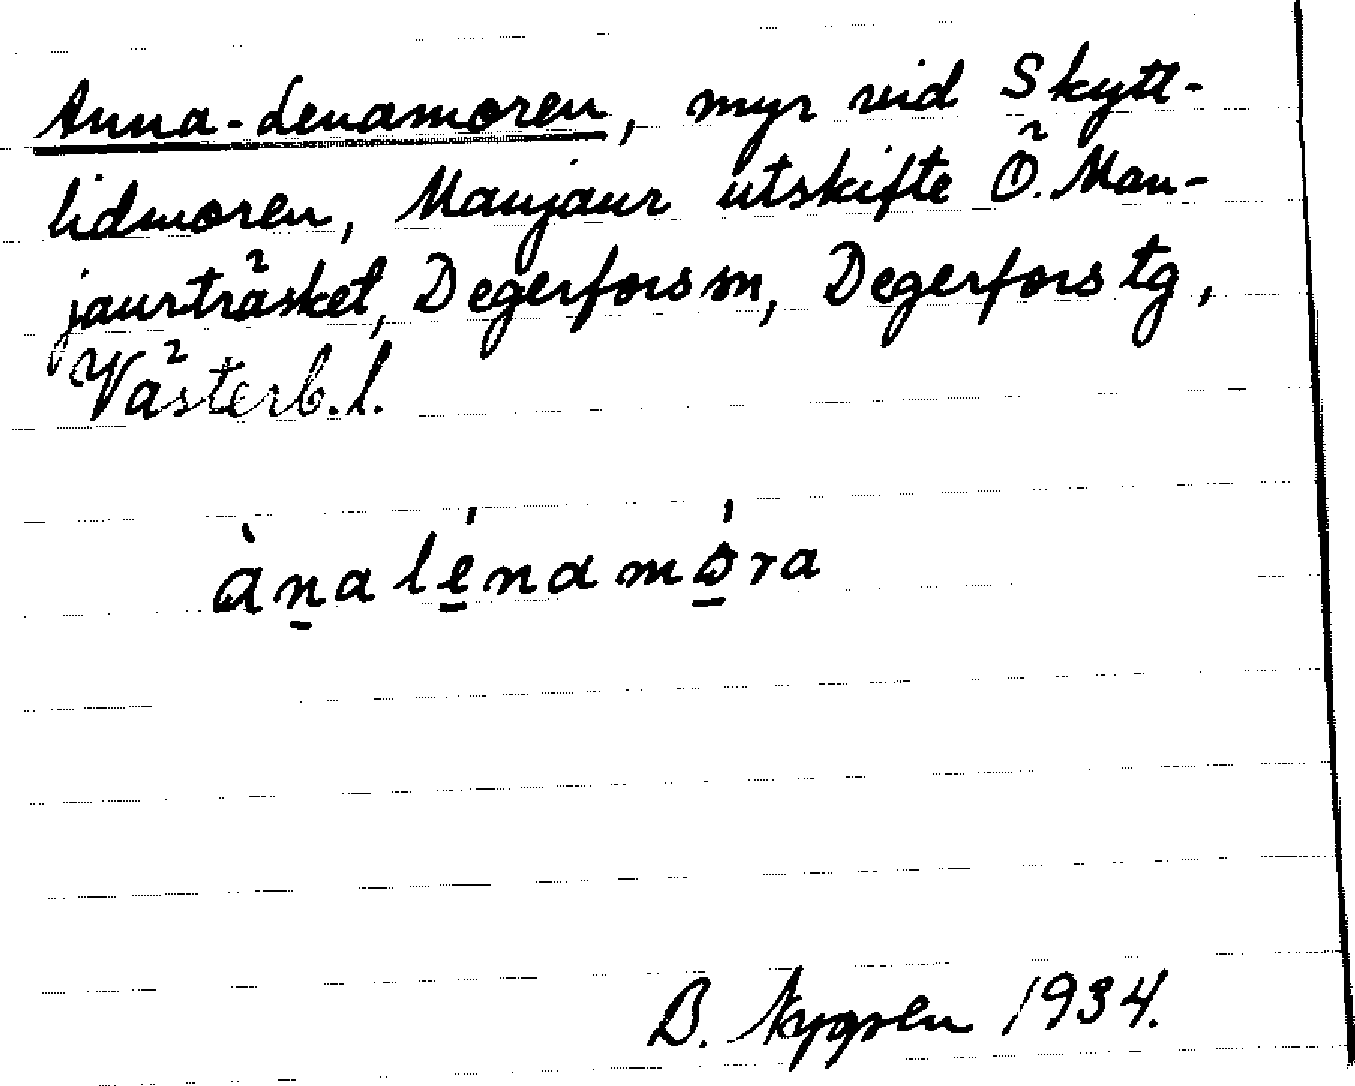 Anna-Lenamoren, myr vid Skytt-
lidmoren, Manjaur utskifte Ö. Man-
jaurträsket, Degerfors sn, Degerfors tg,
Västerb. l.
àn̲alé̲namó̲ra
B. Nygren 1934.